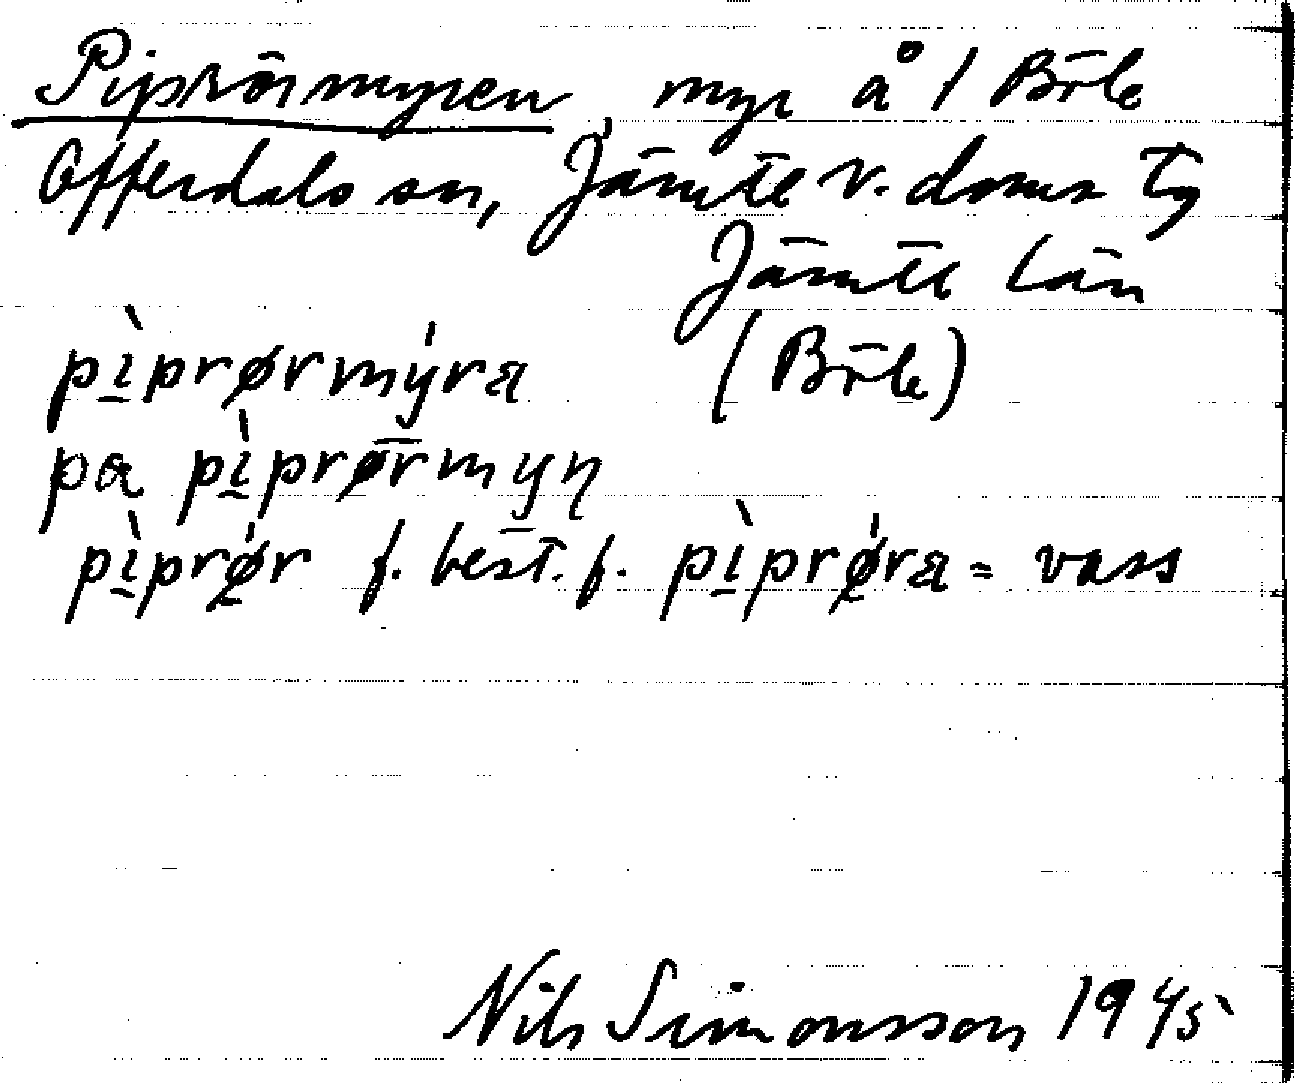 Piprörmyren myr å 1 Böle
Offerdals sn, Jämtl v. doms tg
Jämtl län
pìprørmýra (Böle)
pa pìprørmyn
pìprør f. best. f. pìprøra = vass
Nils Simonsson 1945